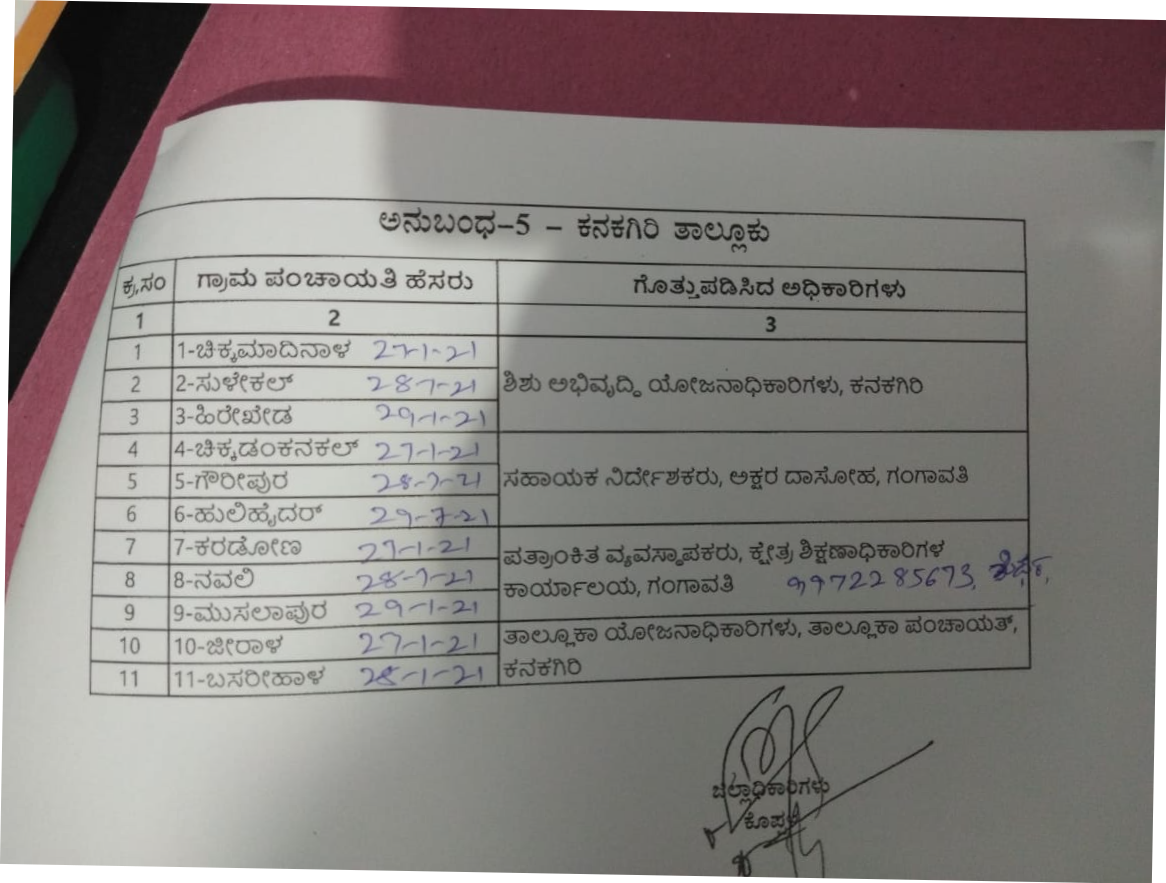 ಅನುಬಂಧ–5 – ಕನಕಗಿರಿ ತಾಲ್ಲೂಕು
ಕ್ರ.ಸಂ ಗ್ರಾಮ ಪಂಚಾಯತಿ ಹೆಸರು ಗೊತ್ತುಪಡಿಸಿದ ಅಧಿಕಾರಿಗಳು
1 2 3
1 1-ಚಿಕ್ಕಮಾದಿನಾಳ 27-1-21
2 2-ಸುಳೇಕಲ್ 28-1-21 ಶಿಶು ಅಭಿವೃದ್ಧಿ ಯೋಜನಾಧಿಕಾರಿಗಳು, ಕನಕಗಿರಿ
3 3-ಹಿರೇಖೇಡ 29-1-21
4 4-ಚಿಕ್ಕಡಂಕನಕಲ್ 27-1-21
5 5-ಗೌರೀಪುರ 28-1-21 ಸಹಾಯಕ ನಿರ್ದೇಶಕರು, ಅಕ್ಷರ ದಾಸೋಹ, ಗಂಗಾವತಿ
6 6-ಹುಲಿಹೈದರ್ 29-1-21
7 7-ಕರಡೋಣ 27-1-21 ಪತ್ರಾಂಕಿತ ವ್ಯವಸ್ಥಾಪಕರು, ಕ್ಷೇತ್ರ ಶಿಕ್ಷಣಾಧಿಕಾರಿಗಳ
8 8-ನವಲಿ 28-1-21 ಕಾರ್ಯಾಲಯ, ಗಂಗಾವತಿ 9972285673,
9 9-ಮುಸಲಾಪುರ 29-1-21
10 10-ಜೀರಾಳ 27-1-21 ತಾಲ್ಲೂಕಾ ಯೋಜನಾಧಿಕಾರಿಗಳು, ತಾಲ್ಲೂಕಾ ಪಂಚಾಯತ್,
11 11-ಬಸರೀಹಾಳ 28-1-21 ಕನಕಗಿರಿ
ಜಿಲ್ಲಾಧಿಕಾರಿಗಳು
ಕೊಪ್ಪಳ